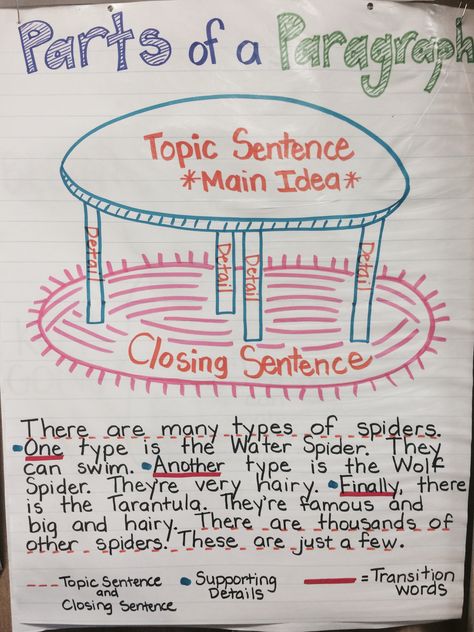 Parts of a Paragraph
Topic Sentence
*Main Idea*
Detail
Detail
Detail
Detail
Closing Sentence
There are many types of spiders.
•One type is the Water Spider. They
can swim. •Another type is the Wolf
Spider. They're very hairy. •Finally, there
is the Tarantula. They're famous and
big and hairy. There are thousands of
other spiders! These are just a few.
--- Topic Sentence
and
Closing Sentence
• Supporting
Details
= Transition
words